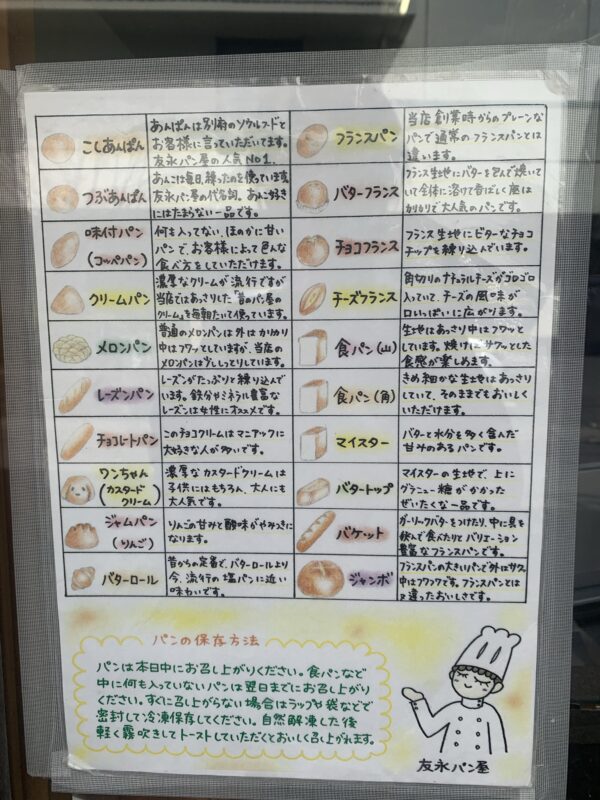 こしあんぱん
あんぱんは別府のソウルフードと
お客様に言っていただいてます。
友永パン屋の人気NO1.
つぶあんぱん
あんこは毎日、練ったのを使っています。
友永パン屋の代名詞。あんこ好き
にはたまらない一品です。
味付パン
(コッペパン)
何も入ってない、ほのかに甘い
パンで、お客様によって色んな
食べ方をしていただけます。
クリームパン
濃厚なクリームが流行ですが
当店ではあっさりした"昔のパン屋の
クリーム"を毎朝たいて使っています。
メロンパン
普通のメロンパンは外はカリカリ
中はフワッとしていますが、当店の
メロンパンは少ししっとりしています。
レーズンパン
レーズンがたっぷりと練り込んで
います。鉄分やミネラル豊富な
レーズンは女性にオススメです。
チョコレートパン
このチョコクリームはマニアックに
大好きな人が多いです。
ワンちゃん
(カスタードクリーム)
濃厚なカスタードクリームは
子供にはもちろん、大人にも
大人気です。
ジャムパン
(りんご)
りんごの甘みと酸味がやみつきに
なります。
バターロール
昔からの定番で、バターロールより
今、流行の塩パンに近い
味わいです。
フランスパン
当店創業時からのプレーンな
パンで通常のフランスパンとは
違います。
バターフランス
フランス生地にバターを包んで焼いて
いて全体に溶けて香ばしく底は
カリカリで大人気のパンです。
チョコフランス
フランス生地にビターなチョコ
チップを練り込んでいます。
チーズフランス
角切りのナチュラルチーズがゴロゴロ
入っていて、チーズの風味が
口いっぱいに広がります。
食パン(山)
生地はあっさり中はフワッと
しています。焼けばサクッとした
食感が楽しめます。
食パン(角)
きめ細かな生地はあっさり
していて、そのままでもおいしく
いただけます。
マイスター
バターと水分を多く含んだ
甘みのあるパンです。
バタートップ
マイスターの生地で、上に
グラニュー糖がかかった
ぜいたくな一品です。
バケット
ガーリックバターをつけたり、中に具を
挟んで食べたりとバリエーション
豊富なフランスパンです。
ジャンボ
フランスパンの大きいパンで外はサクッ
中はフワッです。フランスパンとは
又違ったおいしさです。
パンの保存方法
パンは本日中にお召し上がりください。食パンなど
中に何も入っていないパンは翌日までにお召し上がり
ください。すぐに召し上がらない場合はラップや袋などで
密封して冷凍保存してください。自然解凍した後
軽く霧吹きしてトーストしていただくとおいしく召し上がれます。
友永パン屋